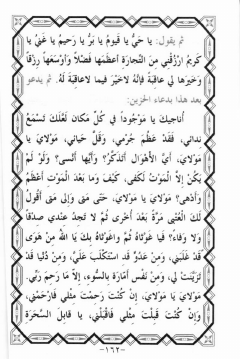 ثم يقول: يا حَيُّ يا قَيومُ يا بَرُّ يا رَحيمُ يا غَنِيُّ يا
كَريمُ ارْزُقْني مِنَ التِّجارَةِ أعظَمَها فَضْلاً وأوْسَعَها رِزْقاً
وَخَيرَها لي عاقِبَةً فإنَّهُ لاخَيرَ فيما لاعاقِبَةَ لَهُ. ثم يدعو
بعد هذا بدعاء الحزين:
اُناجيكَ يا مَوْجُوداً في كُلِّ مكانٍ لَعَلَّكَ تَسمَعُ
نِدائي، فقَدْ عَظُمَ جُرْمي، وَقَلَّ حَيائي، مَولايَ يا
مَولايَ، أيَّ الأهْوالِ أتَذكَّرُ؟ وَأيَّها أنْسى؟ وَلَوْ لَمْ
يَكُنْ إلاّ المَوْتُ لَكفى، كَيْفَ وَما بَعدَ المَوْتِ أعْظَمُ
وَأدْهى؟ مَولايَ يا مَولايَ، حَتى مَتى وَإلى مَتى أقُولُ
لَكَ العُتْبى مَرَّةً بَعْدَ اُخرى ثُمَّ لا تَجِدُ عِندي صِدْقاً
وَلا وَفاءً؟ فَيا غَوثاهُ ثُمَّ واغَوْثاهُ بِكَ يا اللهُ مِنْ هَوىً
قَدْ غَلَبَني، وَمِنْ عَدُوٍّ قَدِ اسْتَكْلَبَ عَلَيَّ، وَمِنْ دُنْيا قَدْ
تَزَيَّنَتْ لي، وَمِنْ نَفْسٍ أمّارَةٍ بِالسُّوءِ، إلاّ ما رَحِمَ رَبّي.
مَولايَ يا مَولايَ، إنْ كُنْتَ رَحِمْتَ مِثْلي فَارْحَمْني،
وَإنْ كُنْتَ قَبِلْتَ مِثْلي فَاقْبَلْني، يا قابِلَ السَّحَرَةِ
-١٦٢-